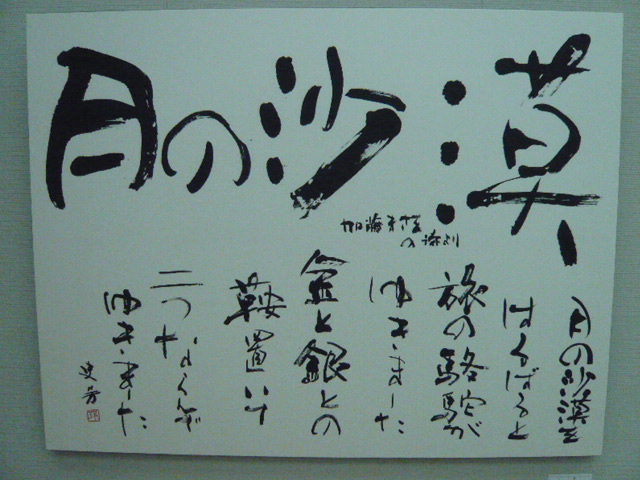 月の沙漠
加藤まさをの詩より
月の沙漠を
はるばると
旅の駱駝が
ゆきました
金と銀との
鞍置いて
二つならんで
ゆきました